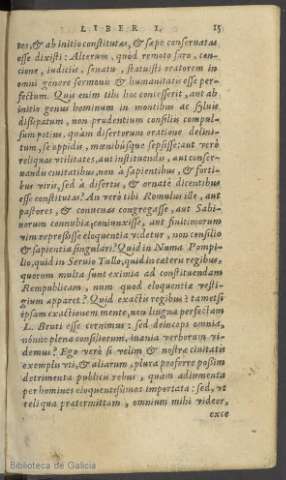 LIBER I. 15
tes, & ab initio constitutas, & sæpe conseruatas
esse dixisti: Alterum, quòd remoto foro, con-
cione, iudiciis, senatu, statuisti oratorem in
omni genere sermonis & humanitatis esse per-
fectum. Quis enim tibi hoc concesserit, aut ab
initio genus hominum in montibus ac syluis
dissipatum, non prudentium consiliis compul-
sum potius, quàm disertorum oratione delini-
tum, se oppidis, mœnibúsque sepsisse: aut verò
reliquas vtilitates, aut instituendis, aut conser-
uandis ciuitatibus, non à sapientibus, & forti-
bus viris, sed à disertis, & ornatè dicentibus
esse constitutas? An verò tibi Romulus ille, aut
pastores, & conuenas congregasse, aut Sabi-
norum connubia coniunxisse, aut finitimorum
vim repressisse eloquentia videtur, non consilio
& sapientia singulari? Quid in Numa Pompi-
lio, quid in Seruio Tullo, quid in cæteris regibus,
quorum multa sunt eximia ad constituendam
Rempublicam, num quod eloquentiæ vesti-
gium apparet? Quid exactis regibus? tametsi
ipsam exactionem mente, non lingua perfectam
L. Bruti esse cernimus: sed deinceps omnia,
nónne plena consiliorum, inania verborum vi-
demus? Ego verò si velim & nostræ ciuitatis
exemplis vti, & aliarum, plura proferre possim
detrimenta publicis rebus, quàm adiumenta
per homines eloquentissimos importata: sed, vt
reliqua prætermittam, omnium mihi videor,
exce
Biblioteca de Galicia